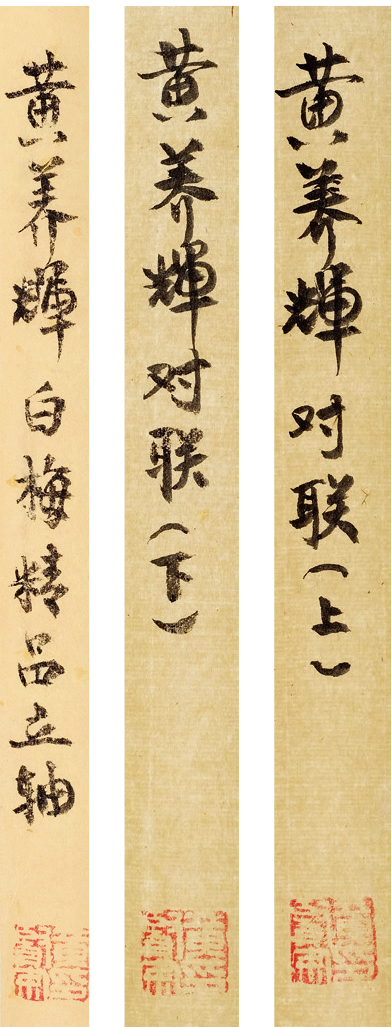 黄养輝对联（上）
黄养輝对联（下）
黄养輝白梅精品立轴